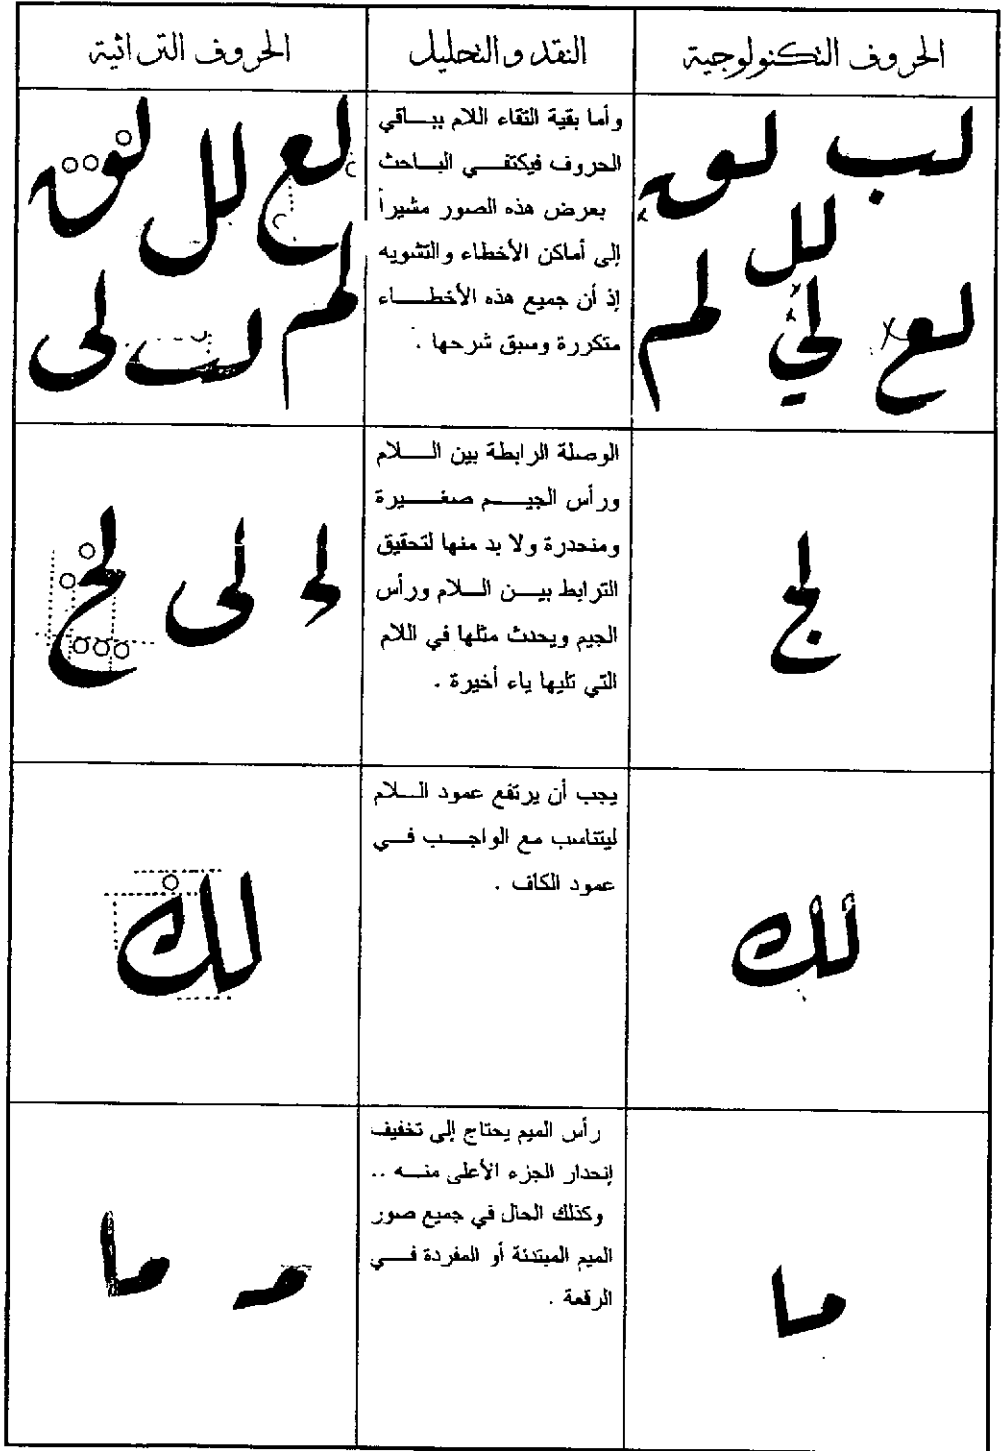 الحروف التكنولوجية
النقد والتحليل
الحروف التراثية
لب
لو
لل
لم
لي
لع
وأما بقية التقاء اللام ببـــاقي
الحروف فيكتفـــي البـــاحث
بعرض هذه الصور مشيراً
إلى أماكن الأخطاء والتشويه
إذ أن جميع هذه الأخطـــاء
متكررة وسبق شرحها .
لع
لل
لم
لى
لج
الوصلة الرابطة بين الـــلام
ورأس الجيـــم صغـــيرة
ومنحدرة ولا بد منها لتحقيق
الترابط بيـــن الـــلام ورأس
الجيم ويحدث مثلها في اللام
التي تليها ياء أخيرة .
لى
لح
لك
يجب أن يرتفع عمود الـــلام
ليتناسب مع الواجـــب فـــي
عمود الكاف .
لك
ما
رأس الميم يحتاج إلى تخفيف
إنحدار الجزء الأعلى منـــه ..
وكذلك الحال في جميع صور
الميم المبتدئة أو المفردة فـــي
الرقعة .
مـ
ما